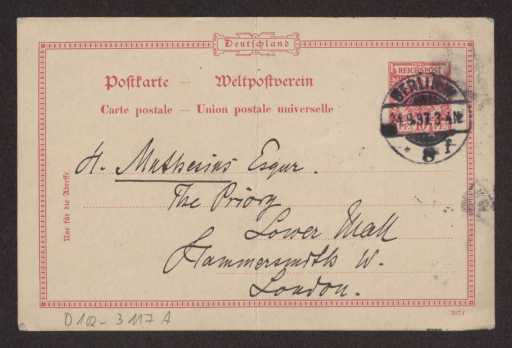 Deutschland
REICHSPOST
Postkarte — Weltpostverein
Carte postale — Union postale universelle
BERLIN W
21.9.97.3-4N.
8 f
Nur für die Adresse
H. Muthesius Esqur.
The Priory
Lower Mall
Hammersmith W.
London.
D 102-3117 A